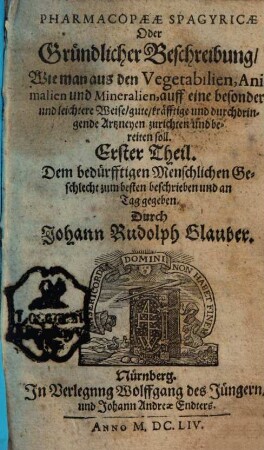 PHARMACOPÆÆ SPAGYRICÆ
Oder
Gründlicher Beschreibung/
Wie man aus den Vegetabilien, Ani
malien und Mineralien, auff eine besonder
und leichtere Weise/ gute/ kräfftige und durchdrin-
gende Artzneyen zurichten und be-
reiten soll.
Erster Theil.
Dem bedürfftigen Menschlichen Ge-
schlecht zum besten beschrieben und an
Tag gegeben.
Durch
Johann Rudolph Glauber.
MISERICORDIA DOMINI NON HABET FINEM
Nürnberg.
In Verlegnng Wolffgang des Jüngern,
und Johann Andreæ Endters.
ANNO M, DC. LIV.